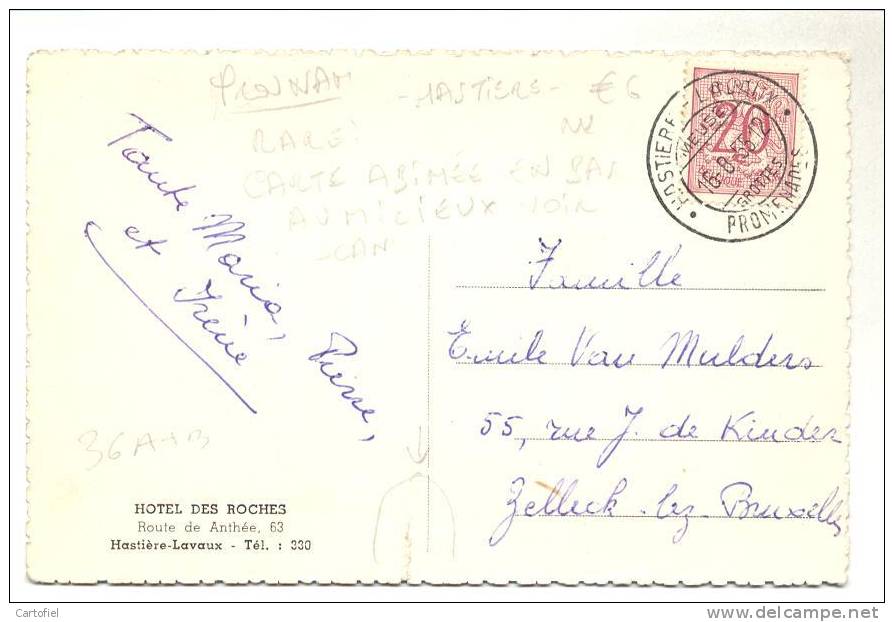 PROVNAM - HASTIERE - € 6
RARE!
CARTE ABIMÉE EN BAS
AU MILIEUX VOIR
SCAN
Tante Maria, Pierre,
et Irène
36A+B
HOTEL DES ROCHES
Route de Anthée, 63
Hastière-Lavaux - Tél. : 330
20
HASTIERE PROMENADES
MEUSE
GROTTES
Famille
Emile Van Mulders
55, rue J. de Kinder
Zelleck-lez-Bruxelles
Cartofiel
www.delcampe.net